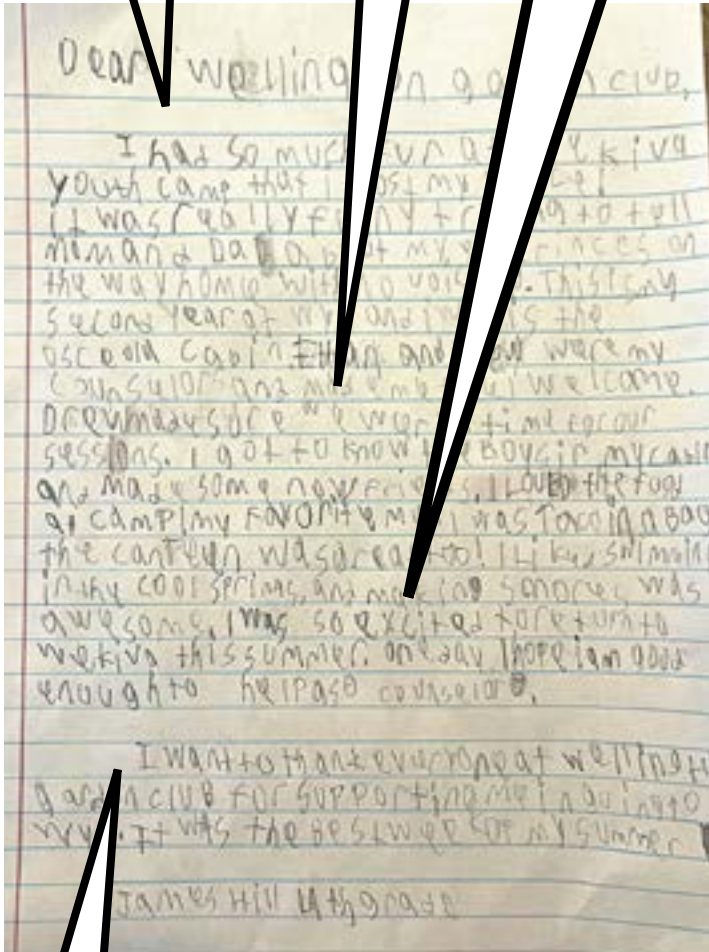 Dear Welling n ga n club,
I had so muc fun a ekiva
youth camp that I lost my
it was really f ny tr ng to tell
mom and Dad ab t my on
the way home with no voi . This is my
second year at and I the
osceola cabin. Ethan and were my
counselors and made me l welcome.
Drew made sore we wer time for our
sessions. I got to know the Boys in my cabin
and made some new friends. I Loved the food
at camp! my FAVORITE m l was Taco in a BAG
the canteen was great to! I Like swimming
in the cool springs, and making smores was
awesome. I was so excited to return to
wekiva this summer. one day I hope I am good
enough to help as counselor.
I want to thank everyone at wellingt
garden club for supporting me in going to
wy . It was the Best week of my summer
James Hill 4th grade